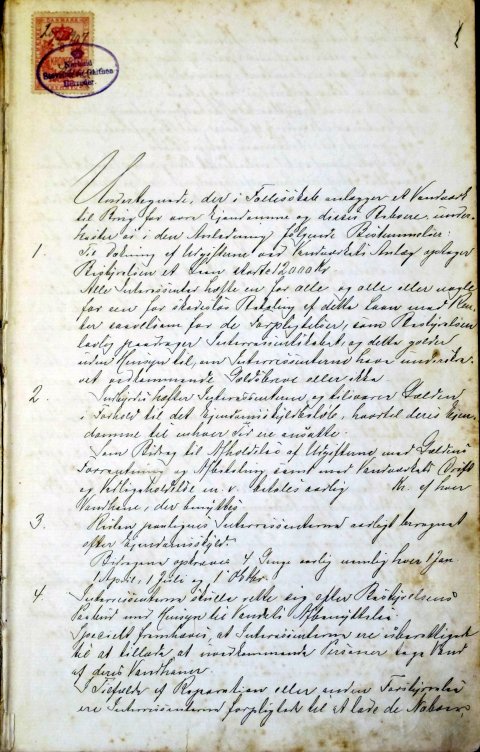 1
Undertegnede, der i Fællesskab anlægger et Vandværk
til Brug for vore Ejendomme og disses Beboere, under-
kaster os i den Anledning følgende Bestemmelser:
1 Til Dækning af Udgifterne ved Vandværkets Anlæg optager
Bestyrelsen et Laan stort 12,000 Kr.
Alle Interessenter hæfte en for alle og alle eller nogle
for een for skadesløs Betaling af dette Laan med Ren-
ter saavelsom for de Forpligtelser, som Bestyrelsen
lovlig paadrager Interessentskabet og dette gælder
uden Hensyn til, om Interessenterne have underskre-
vet vedkommende Gældsbrev eller ikke.
2. Indbyrdes hæfter Interessenterne og tilsvarer Gælden
i Forhold til det Ejendomsskyldsbeløb, hvortil deres Ejen-
domme til enhver Tid ere ansatte.
Som Bidrag til Afholdelse af Udgifterne med Gældens
Forrentning og Afbetaling samt med Vandværkets Drift
og Vedligeholdelse m. v. betales aarlig Kr. af hver
Vandhane, der benyttes.
3. Resten paalignes Interessenterne aarligt beregnet
efter Ejendomsskyld.
Bidragene opkræves 4 Gange aarlig nemlig hver 1 Jan.
1 April, 1 Juli og 1 Oktbr.
4 Interessenterne skulle rette sig efter Bestyrelsens
Paabud med Hensyn til Vandets Afbenyttelse.
Specielt fremhæves, at Interessenterne ere uberettigede
til at tillade, at uvedkommende Personer tage Vand
af deres Vandhaner.
I Tilfælde af Reparation eller anden Forstyrrelse
ere Interessenterne forpligtede til at lade de Naboer,